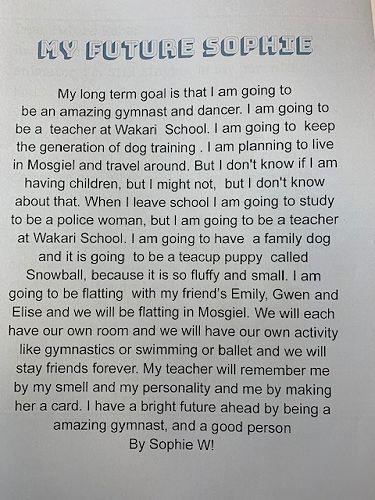 MY FUTURE SOPHIE
My long term goal is that I am going to
be an amazing gymnast and dancer. I am going to
be a teacher at Wakari School. I am going to keep
the generation of dog training . I am planning to live
in Mosgiel and travel around. But I don't know if I am
having children, but I might not, but I don't know
about that. When I leave school I am going to study
to be a police woman, but I am going to be a teacher
at Wakari School. I am going to have a family dog
and it is going to be a teacup puppy called
Snowball, because it is so fluffy and small. I am
going to be flatting with my friend's Emily, Gwen and
Elise and we will be flatting in Mosgiel. We will each
have our own room and we will have our own activity
like gymnastics or swimming or ballet and we will
stay friends forever. My teacher will remember me
by my smell and my personality and me by making
her a card. I have a bright future ahead by being a
amazing gymnast, and a good person
By Sophie W!